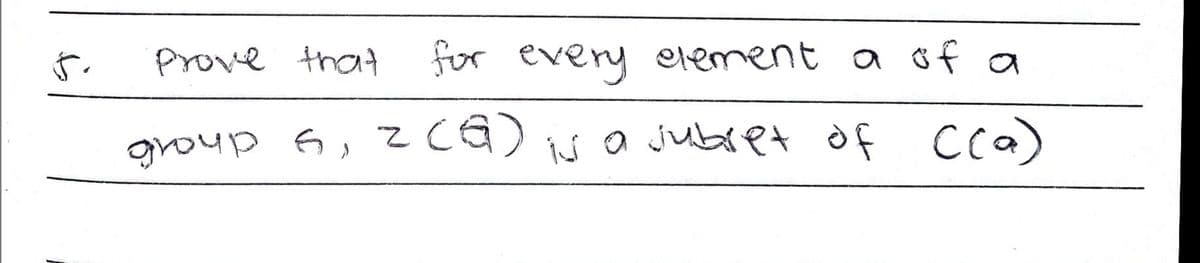 5. Prove that for every element a of a
group G, Z(G) is a subset of C(a)